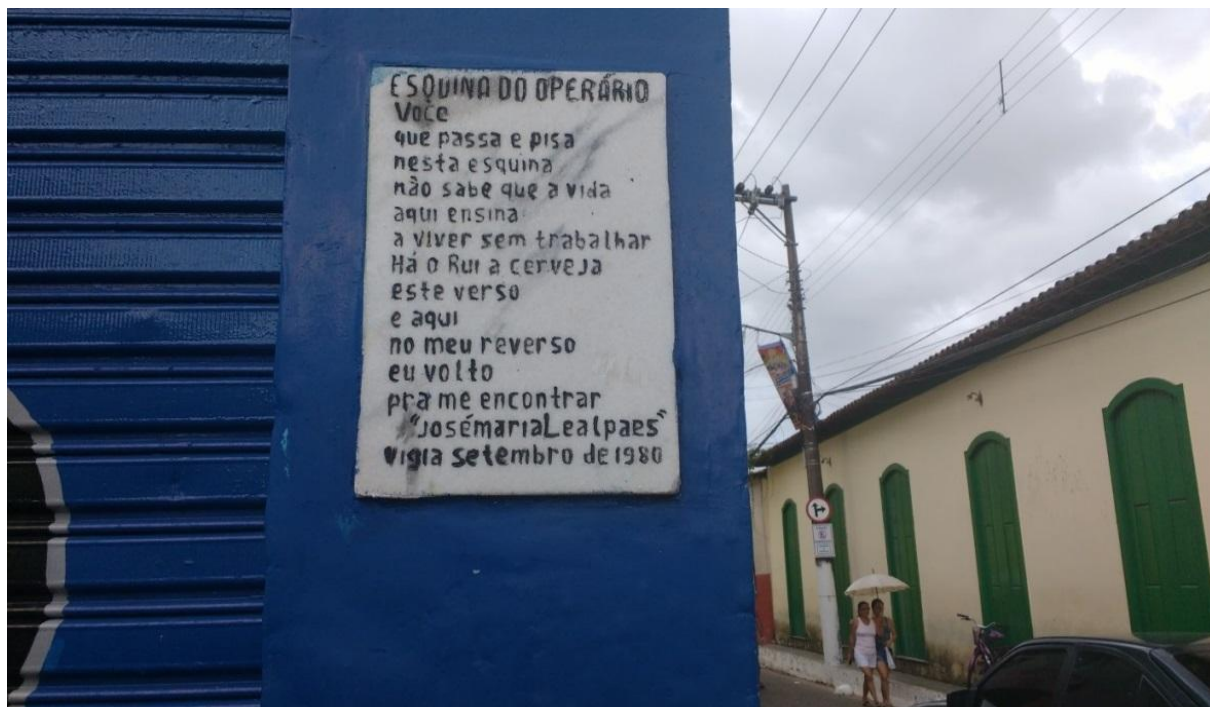 ESQUINA DO OPERÁRIO
Você
que passa e pisa
nesta esquina
não sabe que a vida
aqui ensina
a viver sem trabalhar
Há o Rui a cerveja
este verso
e aqui
no meu reverso
eu volto
pra me encontrar
"josémariaLealpaes"
vigia setembro de 1980